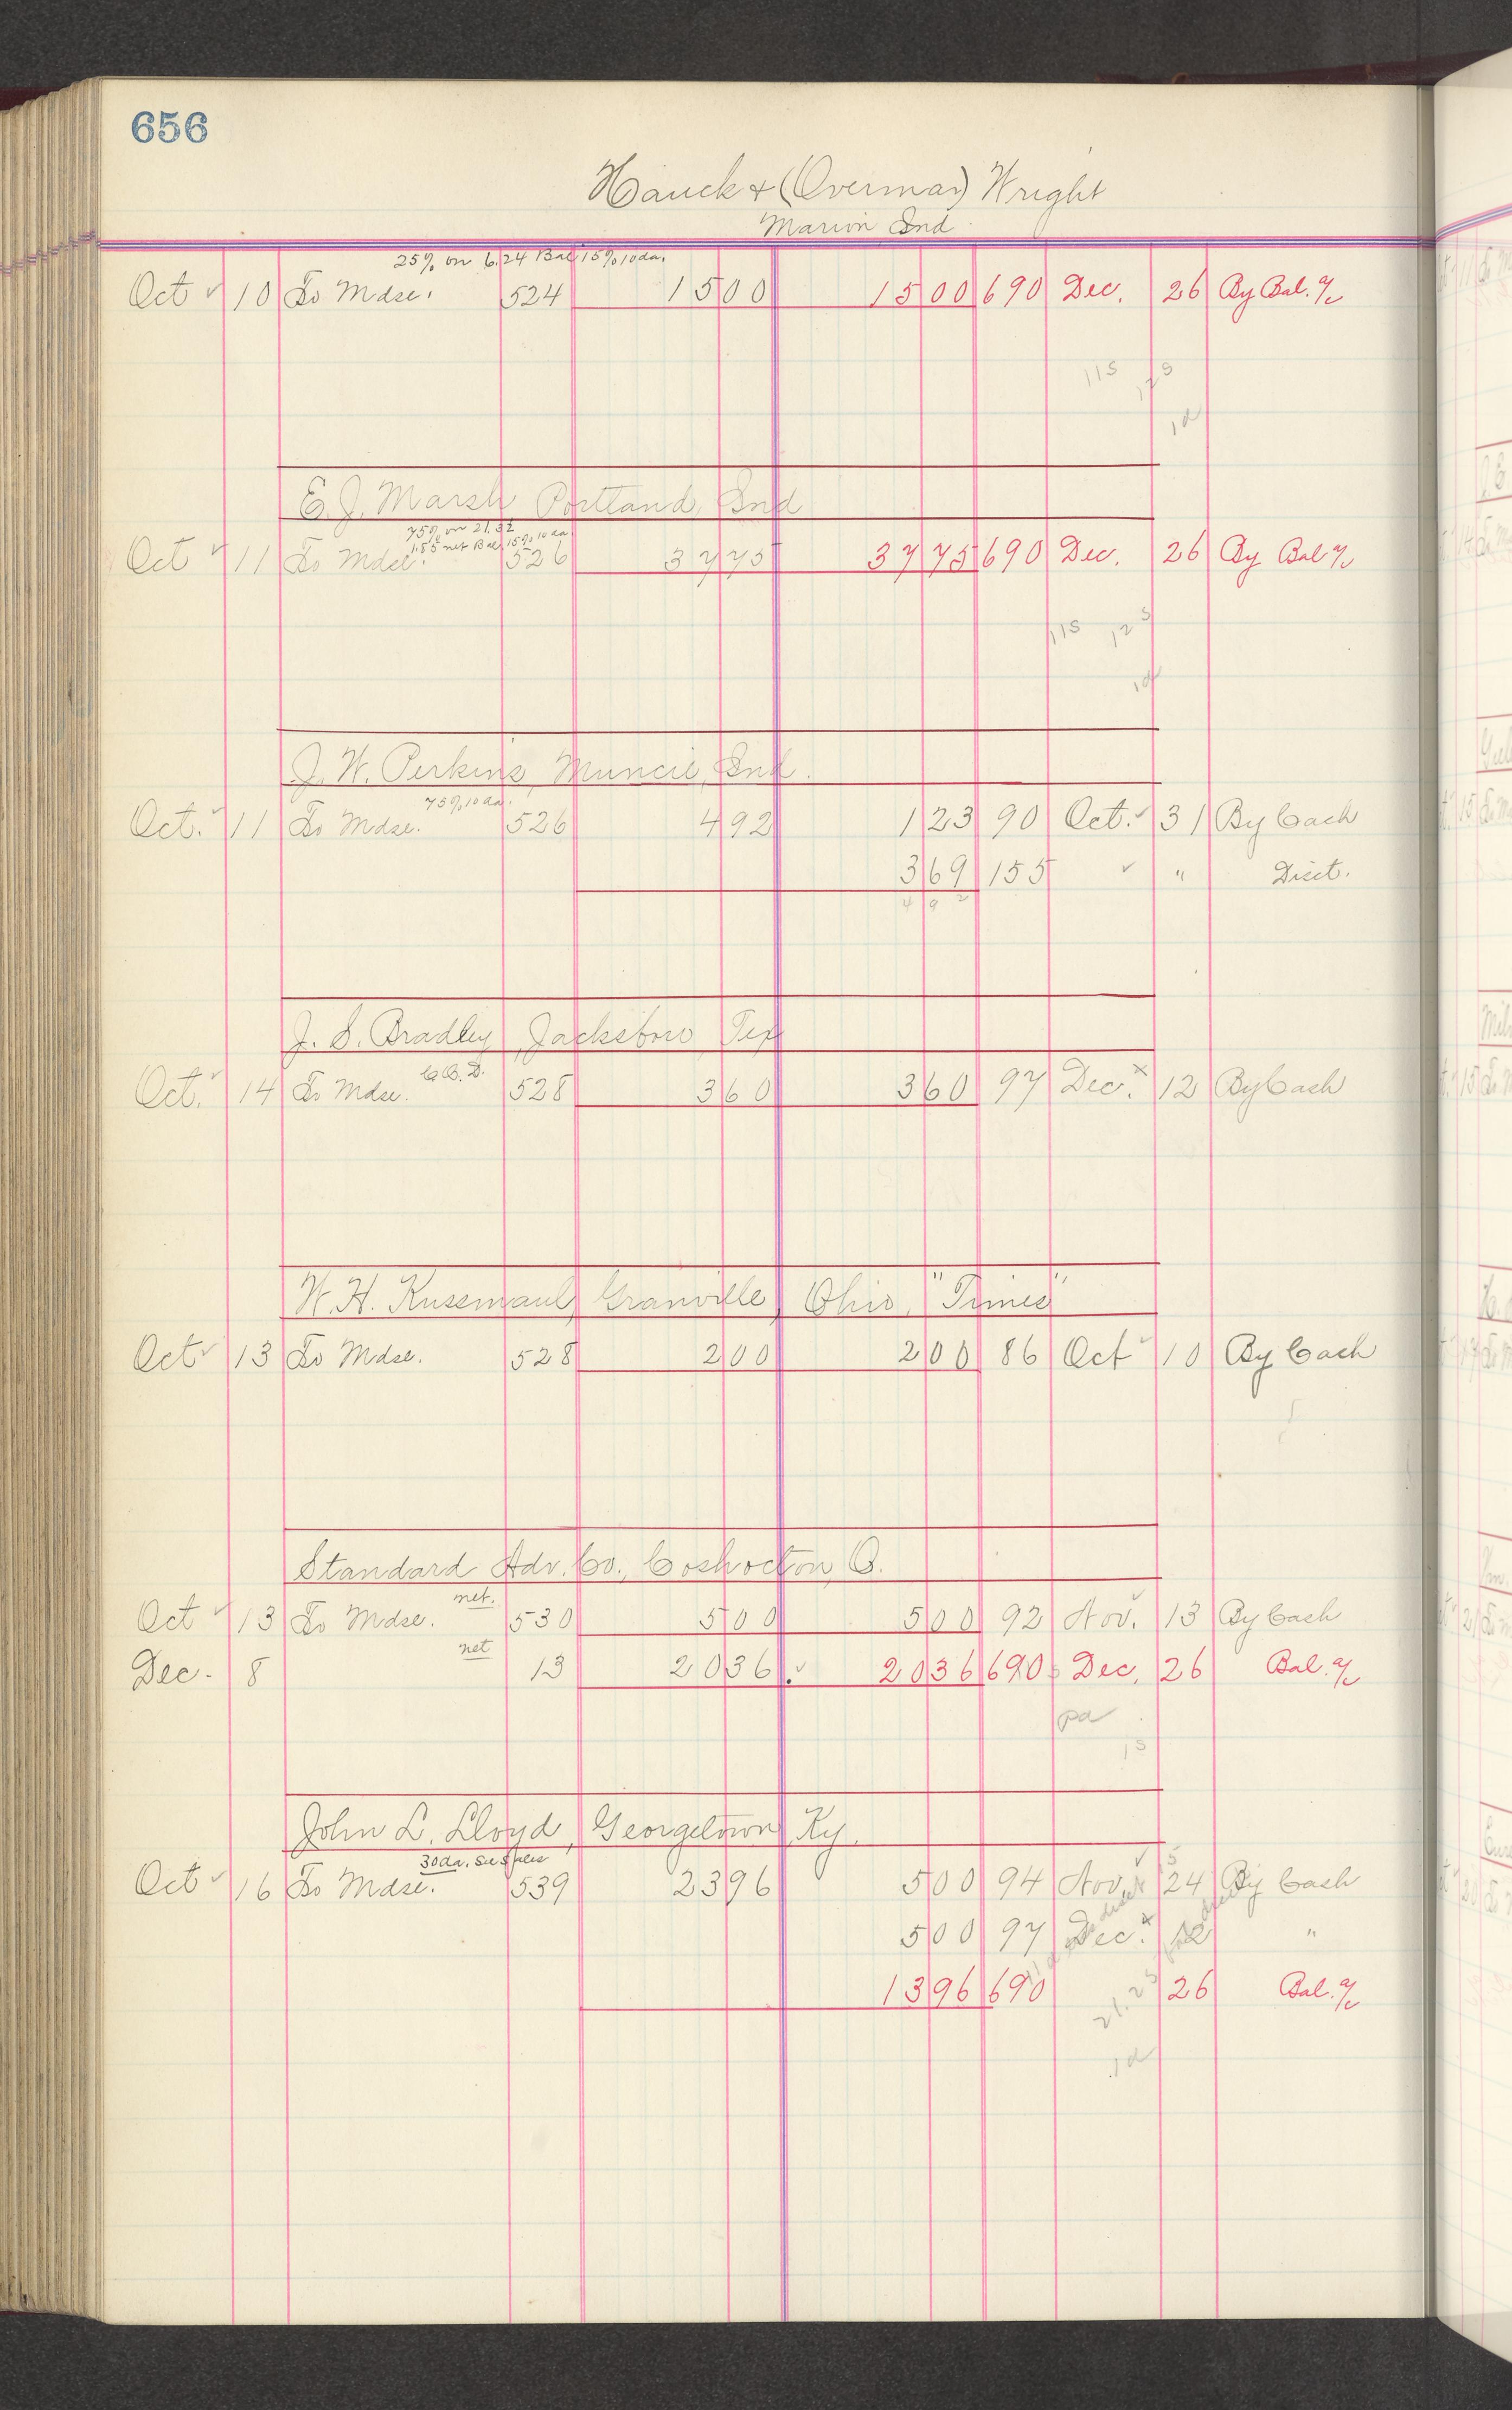 656
Hauck & (Overman) Wright
Marion Ind
25% on 6.24 Bal 15% 10 da.
Oct 10 To Mdse. 524 1500 1500 690 Dec. 26 By Bal. a/c
11s 12s
1d
E. J. Marsh Portland, Ind
75% on 21.32
1.55 net Bal. 15% 10 da
Oct 11 To Mdse. 526 3775 3775 690 Dec. 26 By Bal a/c
11s 12s
1d
J. W. Perkins, Muncie, Ind.
75% 10 da.
Oct. 11 To Mdse. 526 492 123 90 Oct. 31 By Cash
369 155 " Disct.
4 9 2
J. S. Bradley, Jacksboro Tex
C.O.D.
Oct. 14 To Mdse. 528 360 360 97 Dec. 12 By Cash
W. H. Kussmaul, Granville, Ohio, "Times"
Oct 13 To Mdse. 528 200 200 86 Oct 10 By Cash
Standard Adv. Co., Coshocton, O.
net.
Oct 13 To Mdse. 530 500 500 92 Nov. 13 By Cash
net
Dec. 8 13 2036 2036 690 Dec. 26 Bal. a/c
pd
1s
John L. Lloyd, Georgetown, Ky.
30 da.
Oct 16 To Mdse. 539 2396 500 94 Nov. 24 By Cash
500 97 Dec. 12 "
1396 690 26 Bal. a/c
21.25
1d